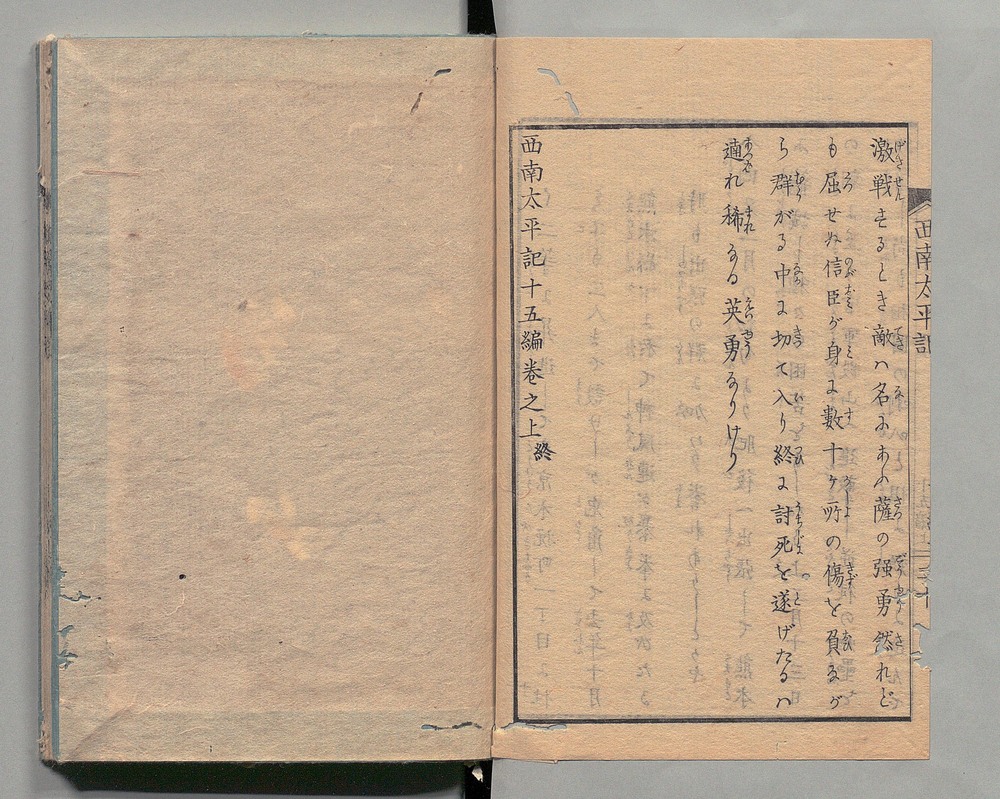 激戦するとき敵ハ名にあふ薩の强勇然れど
も屈せぬ信臣が身に數十ヶ所の傷を負ながら
ら群がる中に切て入り終に討死を遂げたるハ
遖れ稀なる英勇なりけり
西南太平記十五編巻之上終
西南太平記